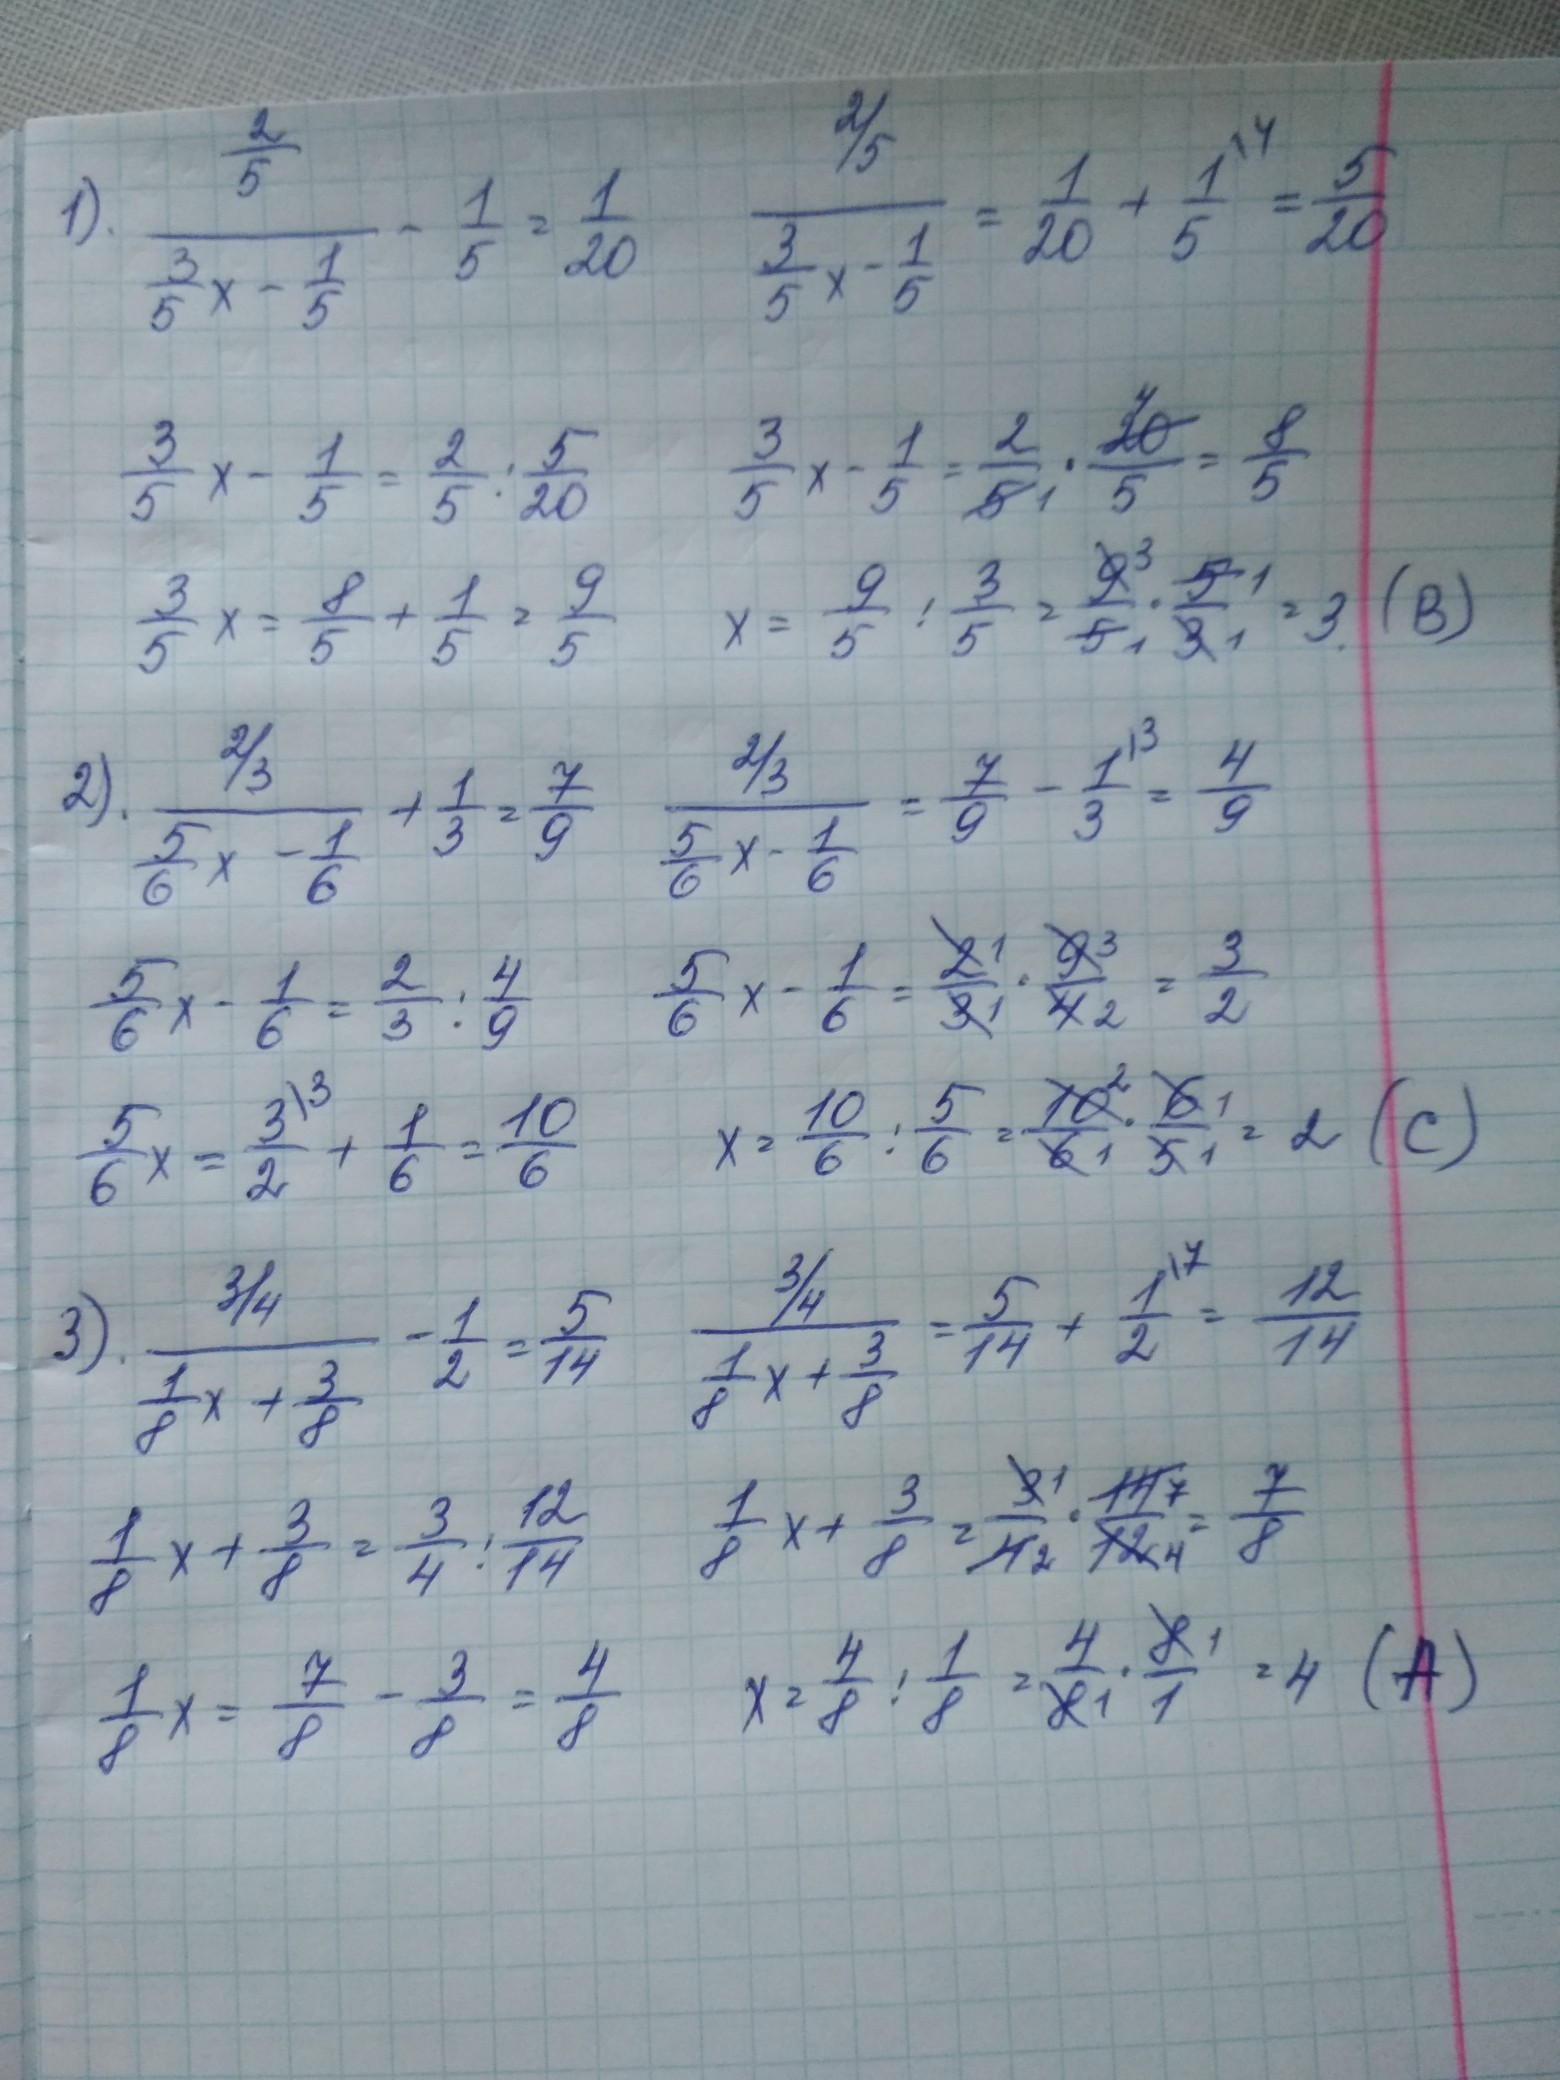 1). (2/5)/(3/5 x - 1/5) - 1/5 = 1/20   (2/5)/(3/5 x - 1/5) = 1/20 + 1\4/5 = 5/20
3/5 x - 1/5 = 2/5 : 5/20   3/5 x - 1/5 = 2/5 1 · 20 4/5 = 8/5
3/5 x = 8/5 + 1/5 = 9/5   x = 9/5 : 3/5 = 9 3/5 1 · 5 1/3 1 = 3. (B)
2). (2/3)/(5/6 x - 1/6) + 1/3 = 7/9   (2/3)/(5/6 x - 1/6) = 7/9 - 1\3/3 = 4/9
5/6 x - 1/6 = 2/3 : 4/9   5/6 x - 1/6 = 2 1/3 1 · 9 3/4 2 = 3/2
5/6 x = 3\3/2 + 1/6 = 10/6   x = 10/6 : 5/6 = 10 2/6 1 · 6 1/5 1 = 2 (C)
3). (3/4)/(1/8 x + 3/8) - 1/2 = 5/14   (3/4)/(1/8 x + 3/8) = 5/14 + 1\7/2 = 12/14
1/8 x + 3/8 = 3/4 : 12/14   1/8 x + 3/8 = 3 1/4 2 · 14 7/12 4 = 7/8
1/8 x = 7/8 - 3/8 = 4/8   x = 4/8 : 1/8 = 4/8 1 · 8 1/1 = 4 (A)